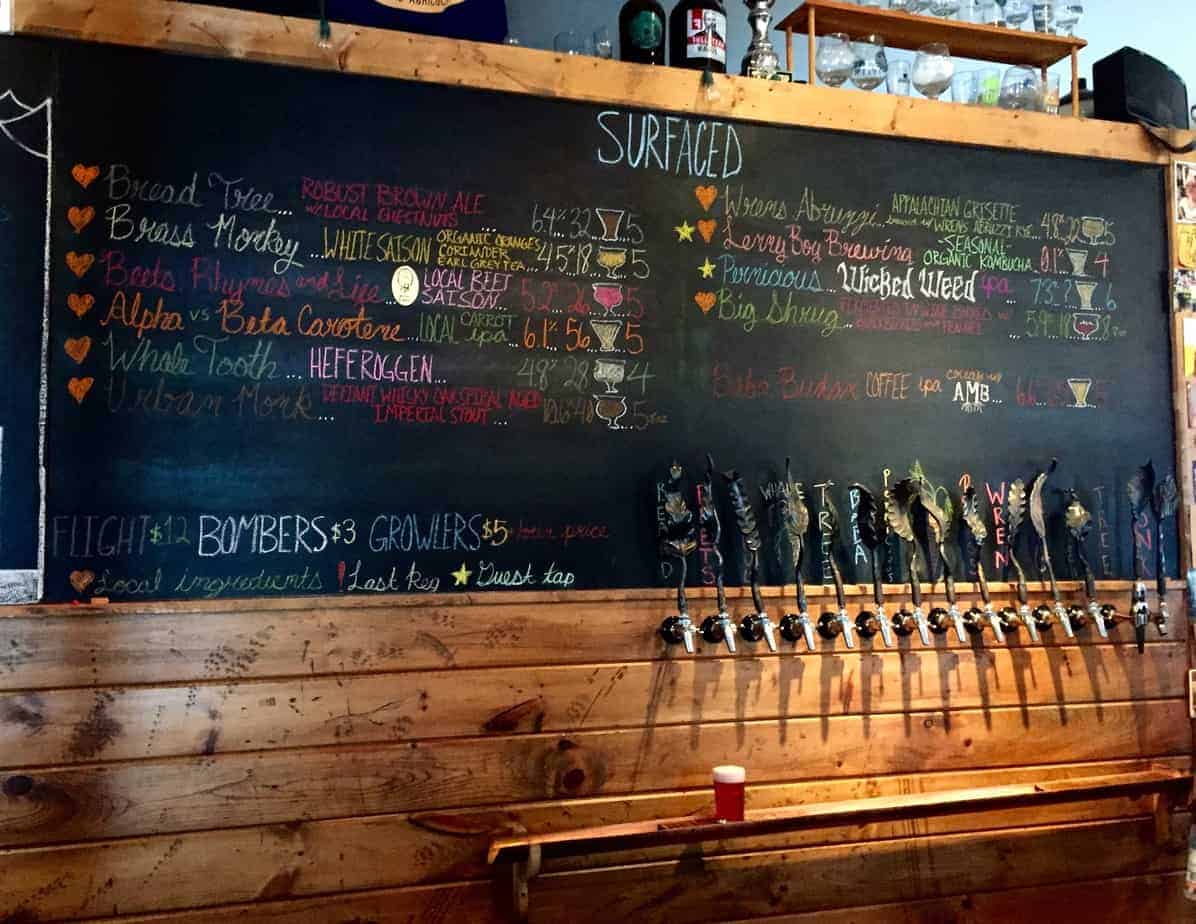 SURFACED
Bread Tree... ROBUST BROWN ALE
w/ LOCAL CHESTNUTS 6.4% 22 5
Brass Monkey ...WHITE SAISON ORGANIC ORANGES
CORIANDER
EARL GREY TEA 4.5% 18 5
Beets, Rhymes and Life... LOCAL BEET
SAISON... 5.2% 26 5
Alpha vs Beta Carotene... LOCAL CARROT
ipa... 6.1% 56 5
Whale Tooth... HEFEROGGEN... 4.8% 28 4
Urban Monk... DEFIANT WHISKY OAK SPIRAL AGED
IMPERIAL STOUT... 10.6% 48 5
Wrens Abruzzi... APPALACHIAN GRISETTE
WRENS ABRUZZI RYE... 4.8% 22 5
Lenny Boy Brewing -SEASONAL-
ORGANIC KOMBUCHA... 0.1% 4
Pernicious... Wicked Weed ipa... 7.3% ? 6
Big Shrug... 5.9% 18
Baba Budan COFFEE ipa
AMB... 6.6% 5
FLIGHT $12 BOMBERS $3 GROWLERS $5 + beer price
Local ingredients ! Last Keg Guest tap
BETS
WHALE
TREE
BABA
WREN
TREE